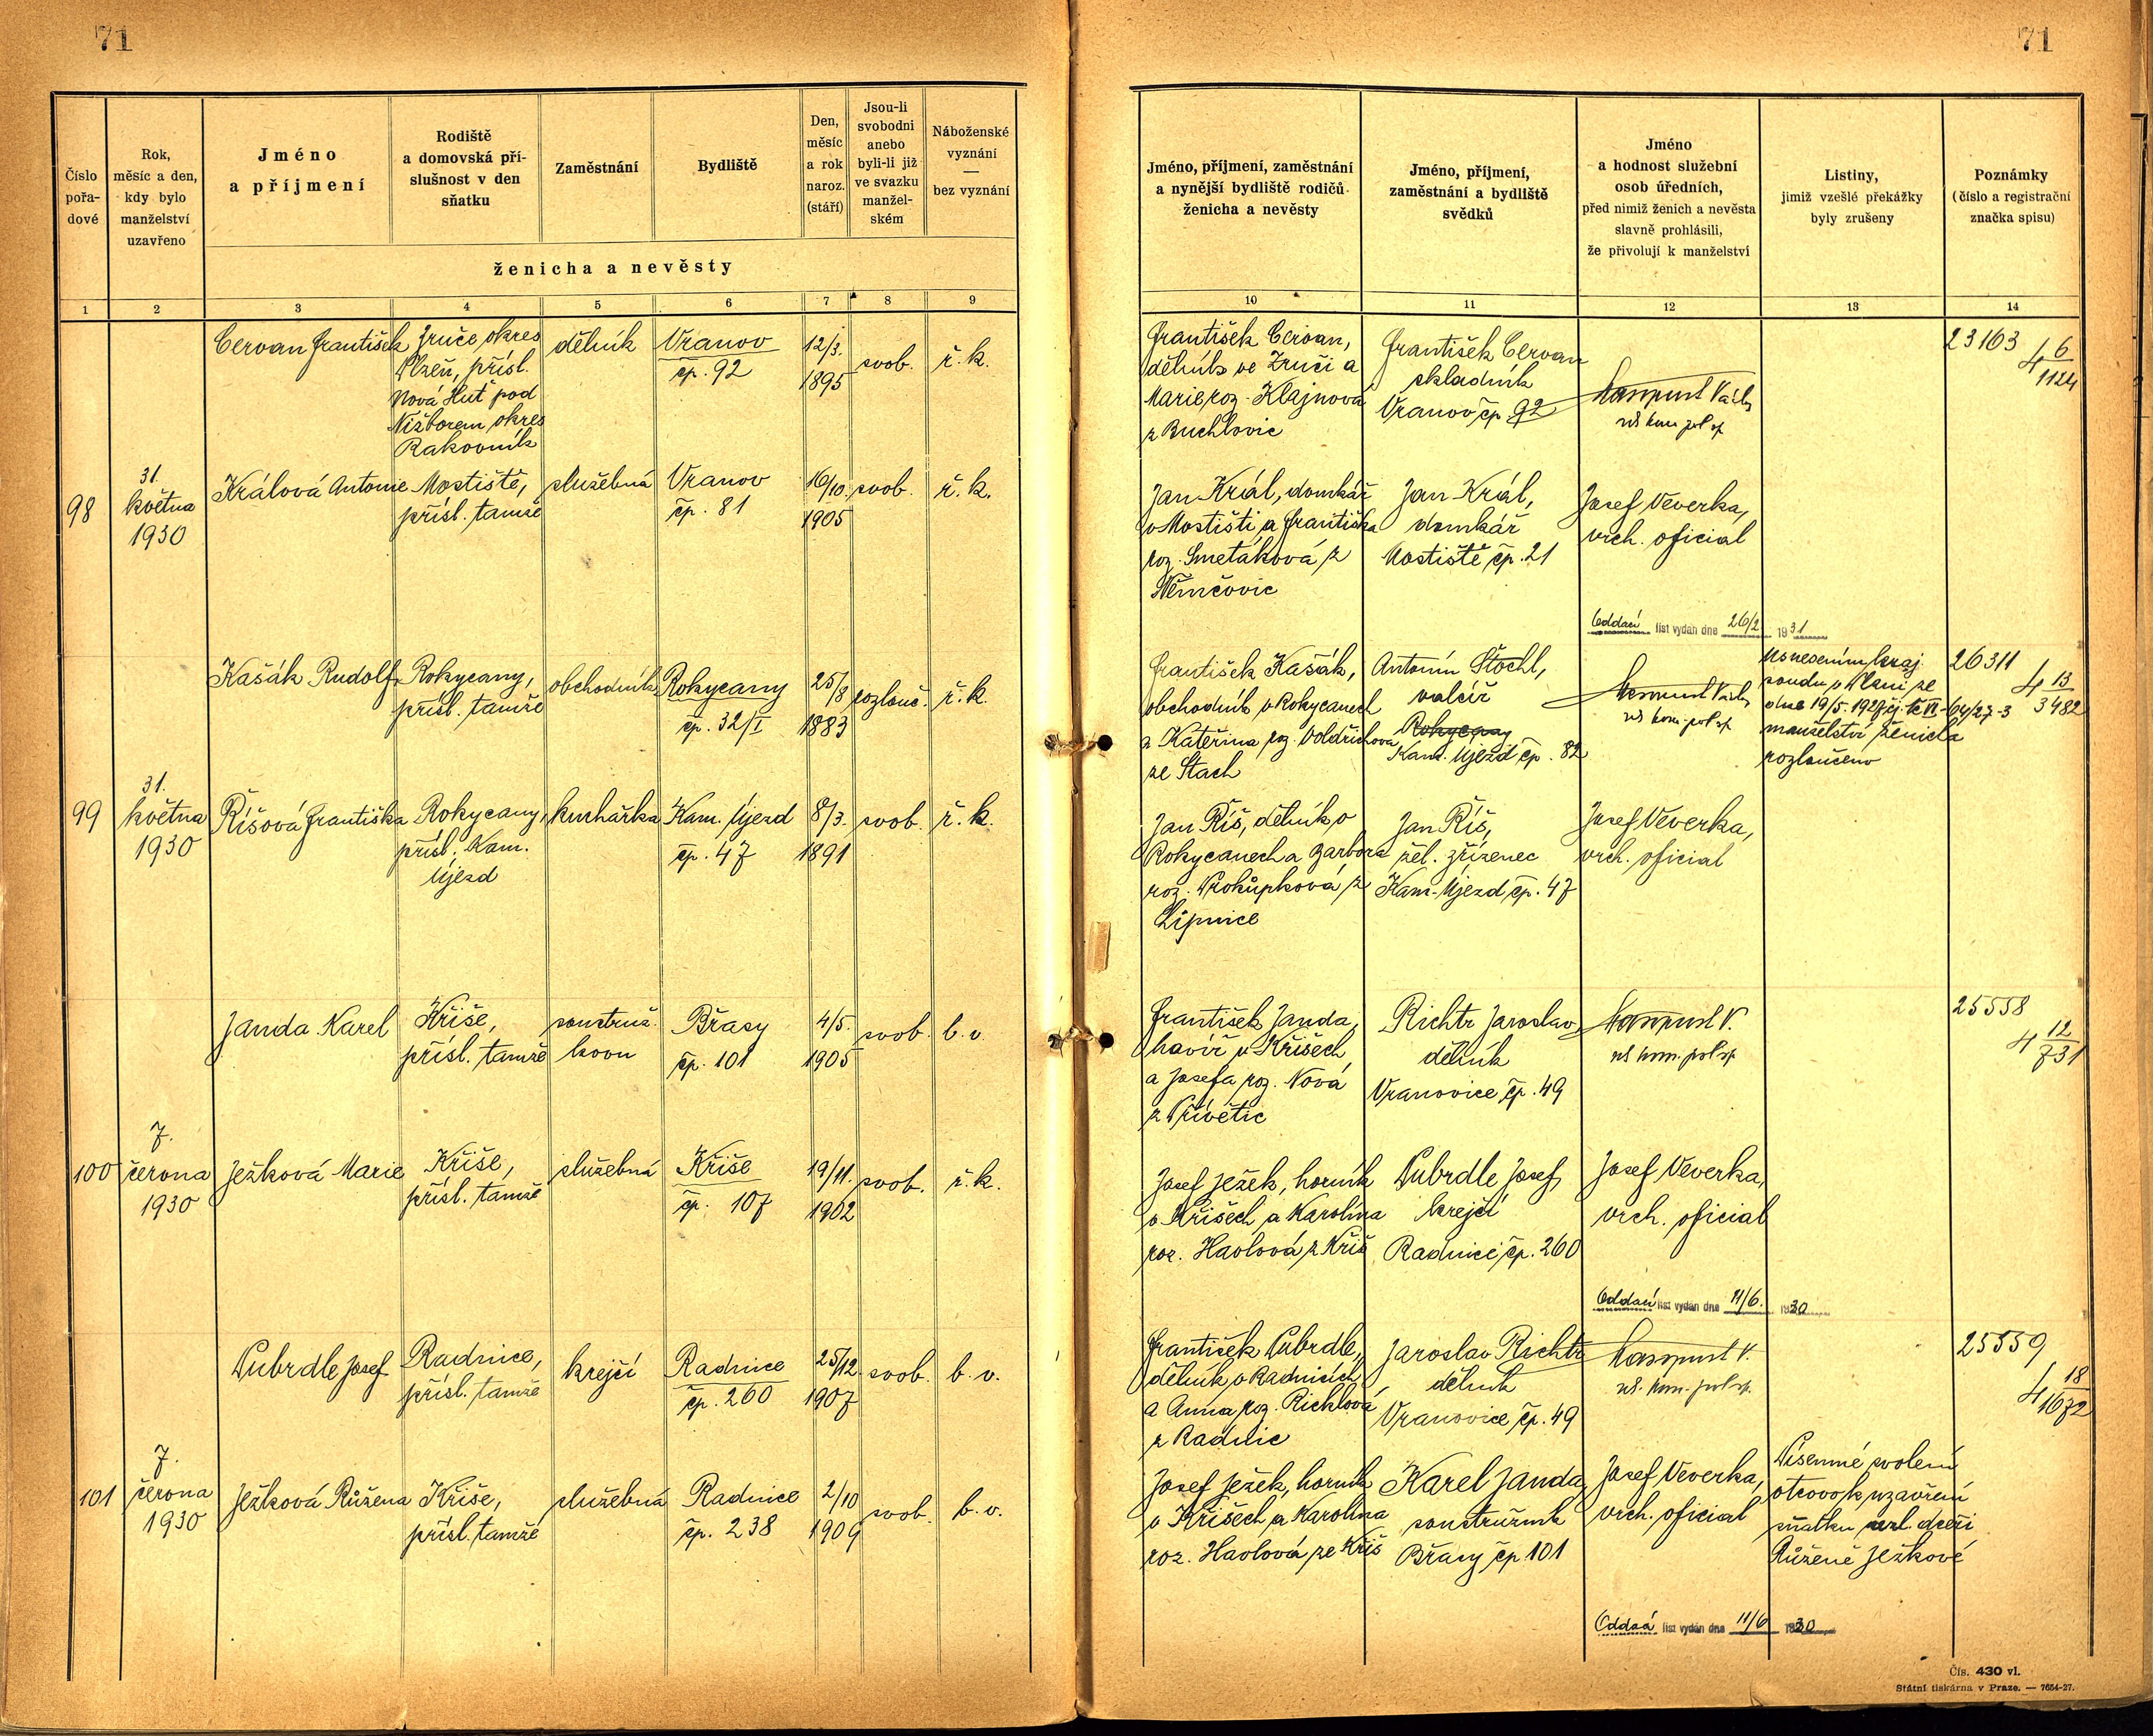 71
71
Číslo
pořa-
dové
Rok,
měsíc a den,
kdy bylo
manželství
uzavřeno
Jméno
a příjmení
Rodiště
a domovská pří-
slušnost v den
sňatku
Zaměstnání
Bydliště
Den,
měsíc
a rok
naroz.
(stáří)
Jsou-li
svobodni
anebo
byli-li již
ve svazku
manžel-
ském
Náboženské
vyznání
—
bez vyznání
ženicha a nevěsty
1 2 3 4 5 6 7 8 9
Jméno, příjmení, zaměstnání
a nynější bydliště rodičů
ženicha a nevěsty
Jméno, příjmení,
zaměstnání a bydliště
svědků
Jméno
a hodnost služební
osob úředních,
před nimiž ženich a nevěsta
slavně prohlásili,
že přivolují k manželství
Listiny,
jimiž vzešlé překážky
byly zrušeny
Poznámky
(číslo a registrační
značka spisu)
10 11 12 13 14
Cervan František
Zruče, okres
Plzeň, přísl.
Nová Huť pod
Nižborem, okres
Rakovník
dělník
Vranov
čp. 92
12/3.
1895
svob.
ř. k.
František Cervan,
dělník ve Zruči a
Marie, roz. Klajnová
z Buchlovic
František Cervan
skladník
Vranov čp. 92
23163
4 6/1124
98
31.
května
1930
Králová Antonie
Mostiště,
přísl. tamže
služebná
Vranov
čp. 81
16/10.
1905
svob.
ř. k.
Jan Král, domkář
v Mostišti, a Františka
roz. Smetáková, z
Němčovic
Jan Král,
domkář
Mostiště čp. 21
Josef Veverka,
vrch. oficial
Oddací list vydán dne 26/2 1931
Kašák Rudolf
Rokycany,
přísl. tamže
obchodník
Rokycany
čp. 32/I
25/8
1883
rozlouč.
ř. k.
František Kašák,
obchodník v Rokycanech
a Kateřina, roz. Voldřichová
ze Stach
Antonín Štochl,
valcíř
Rokycany
Kam. Újezd čp. 82
Usnesením kraj.
soudu v Plzni ze
dne 19/5. 1927
manželství ženicha
rozloučeno
26311
4 13/3482
99
31.
května
1930
Říšová Františka
Rokycany,
přísl. Kam.
Újezd
kuchařka
Kam. Újezd
čp. 47
8/3.
1891
svob.
ř. k.
Jan Říš, dělník v
Rokycanech a Barbora
roz. Prokůpková, z
Lipnice
Jan Říš,
žel. zřízenec
Kam. Újezd čp. 47
Josef Veverka,
vrch. oficial
Janda Karel
Kříše,
přísl. tamže
soustruž.
kovu
Břasy
čp. 101
4/5.
1905
svob.
b. v.
František Janda,
havíř v Kříšech,
a Josefa, roz. Nová
z Přívětic
Richtr Jaroslav,
dělník
Vranovice čp. 49
25558
4 12/731
100
7.
června
1930
Ježková Marie
Kříše,
přísl. tamže
služebná
Kříše
čp. 107
19/11.
1902
svob.
ř. k.
Josef Ježek, horník
v Kříšech a Karolina
roz. Havlová, z Kříš
Pubrdle Josef,
krejčí
Radnice, čp. 260
Josef Veverka,
vrch. oficial
Oddací list vydán dne 11/6. 1930
Pubrdle Josef
Radnice,
přísl. tamže
krejčí
Radnice
čp. 260
25/12.
1907
svob.
b. v.
František Pubrdle,
dělník v Radnicích
a Anna, roz. Richlová
z Radnic
Jaroslav Richtr
dělník
Vranovice čp. 49
25559
4 18/1672
101
7.
června
1930
Ježková Růžena
Kříše,
přísl. tamže
služebná
Radnice
čp. 238
2/10
1909
svob.
b. v.
Josef Ježek, horník
v Kříšech a Karolina
roz. Havlová, ze Kříš
Karel Janda,
soustružník
Břasy čp. 101
Josef Veverka,
vrch. oficial
Písemné svolení
otcovo k uzavření
sňatku nezl. dceři
Růženě Ježkové
Oddací list vydán dne 11/6 1930
Čís. 430 vl.
Státní tiskárna v Praze. — 7654-27.